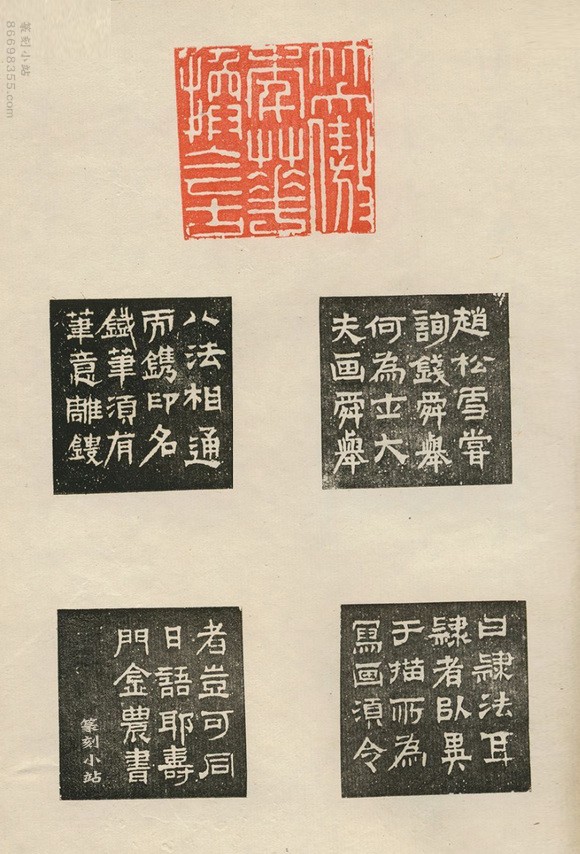 篆刻小站
86698355.com
趙松雪嘗
詢錢舜舉
何為士大
夫画舜舉
曰隸法耳
隸者以異
于描所為
寫画須令
八法相通
而鐫印名
鐵筆須有
筆意雕鏤
者豈可同
日語耶壽
門金農書
篆刻小站